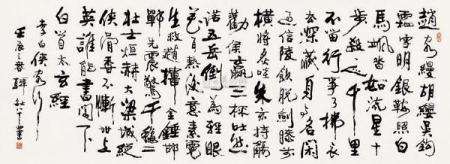 趙客縵胡纓吳鉤
霜雪明銀鞍照白
馬颯沓如流星十
步殺一人千里
不留行事了拂衣
去深藏身與名閑
過信陵飲脫劍膝前
橫將炙啖朱亥持觴
勸侯嬴三杯吐然
諾五岳倒為輕眼
花耳熱後意氣素霓
生救趙揮金鎚邯
鄲先震驚千秋二
壯士烜赫大梁城縱死
俠骨香不慚世上
英誰能書閣下
白首太玄經
李白俠客行